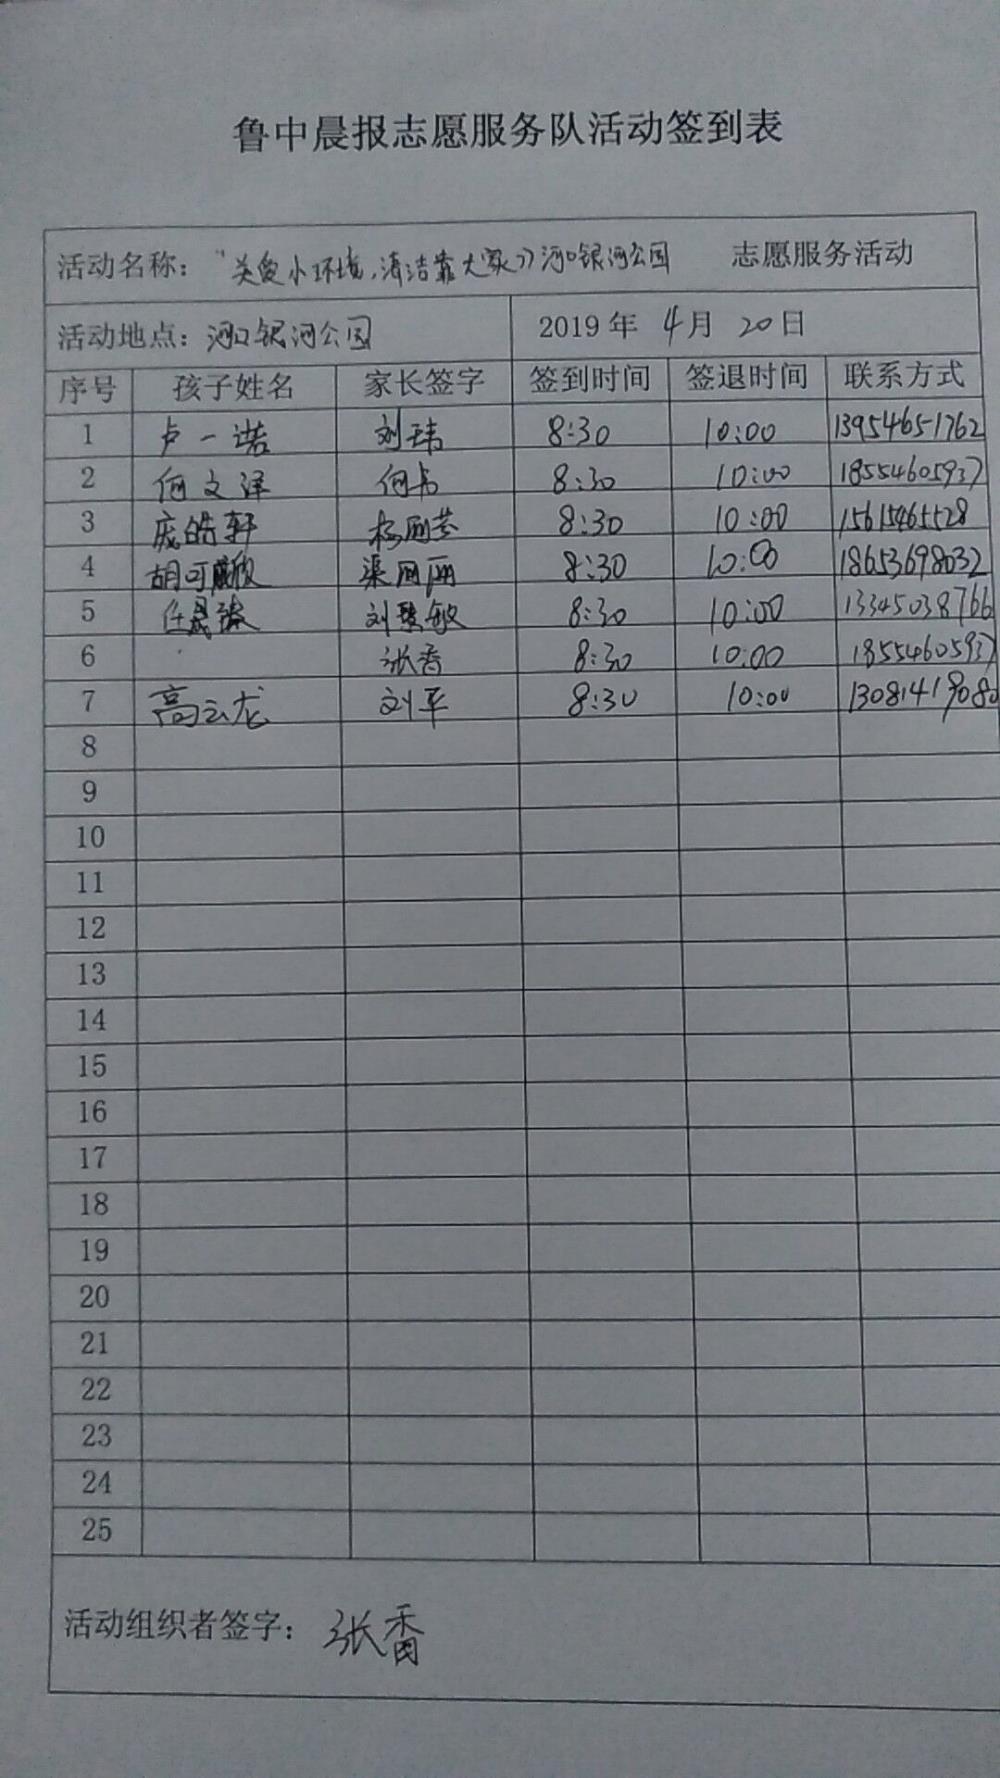 鲁中晨报志愿服务队活动签到表
活动名称：“关爱小环境，清洁靠大家”河口银河公园 志愿服务活动
活动地点：河口银河公园 2019年 4月 20日
序号 孩子姓名 家长签字 签到时间 签退时间 联系方式
1 卢一诺 刘玮 8:30 10:00 13954651762
2 何文泽 何书 8:30 10:00 18554605937
3 庞皓轩 杨丽芸 8:30 10:00 15615465528
4 胡可 渠丽丽 8:30 10:00 18653698032
5 任晟 刘慧敏 8:30 10:00 13345038766
6 张香 8:30 10:00 18554605937
7 高云龙 刘平 8:30 10:00 13081419080
8
9
10
11
12
13
14
15
16
17
18
19
20
21
22
23
24
25
活动组织者签字：张香